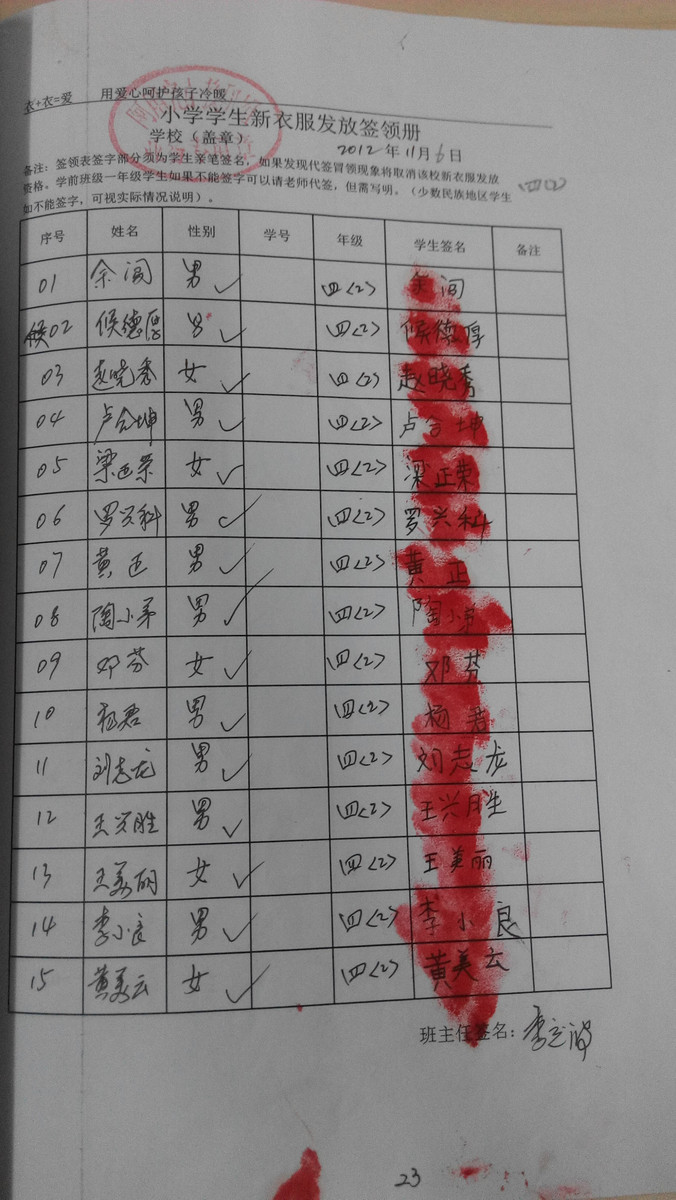 衣+衣=爱 用爱心呵护孩子冷暖
小学学生新衣服发放签领册
学校（盖章） 2012年11月6日
备注：签领表签字部分须为学生亲笔签名，如果发现代签冒领现象将取消该校新衣服发放
资格。学前班级一年级学生如果不能签字可以请老师代签，但需写明。（少数民族地区学生
如不能签字，可视实际情况说明）。
序号 姓名 性别 学号 年级 学生签名 备注
01 余闯 男 ✓ 四<2> 余闯
候02 候德厚 男 ✓ 四<2> 候德厚
03 赵晓秀 女 ✓ 四<2> 赵晓秀
04 卢合坤 男 ✓ 四<2> 卢合坤
05 梁正荣 女 ✓ 四<2> 梁正荣
06 罗兴科 男 ✓ 四<2> 罗兴科
07 黄正 男 ✓ 四<2> 黄正
08 陶小弟 男 ✓ 四<2> 陶小弟
09 邓芬 女 ✓ 四<2> 邓芬
10 杨君 男 ✓ 四<2> 杨君
11 刘志龙 男 ✓ 四<2> 刘志龙
12 王兴胜 男 ✓ 四<2> 王兴胜
13 王美丽 女 ✓ 四<2> 王美丽
14 李小良 男 ✓ 四<2> 李小良
15 黄美云 女 ✓ 四<2> 黄美云
班主任签名：
23